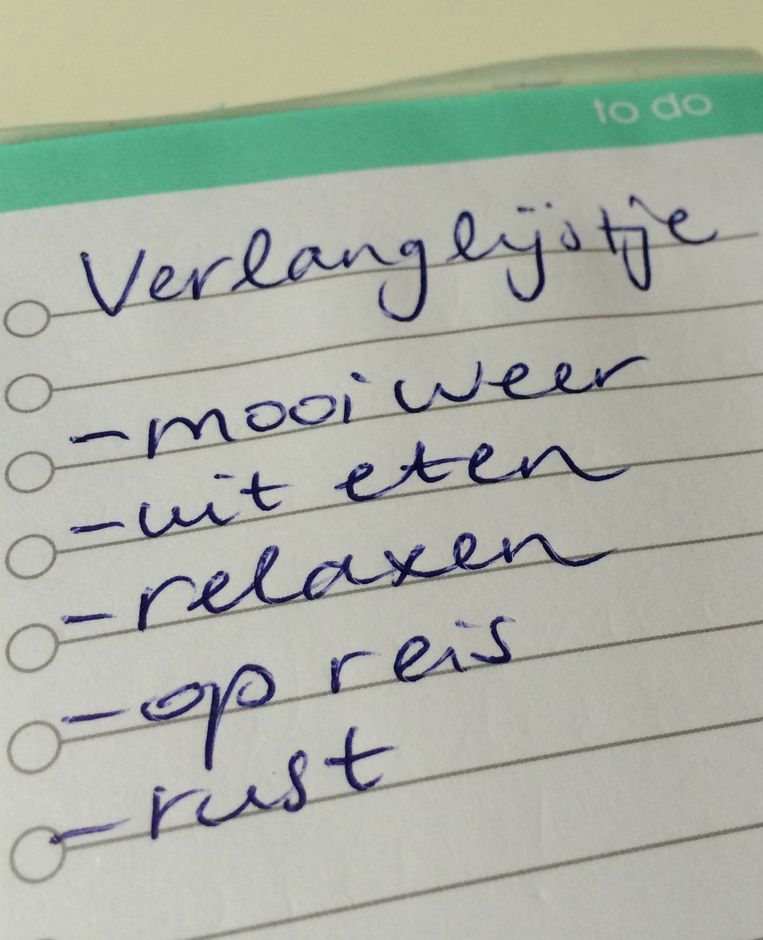 to do
Verlanglijstje
- mooi weer
- uit eten
- relaxen
- op reis
- rust